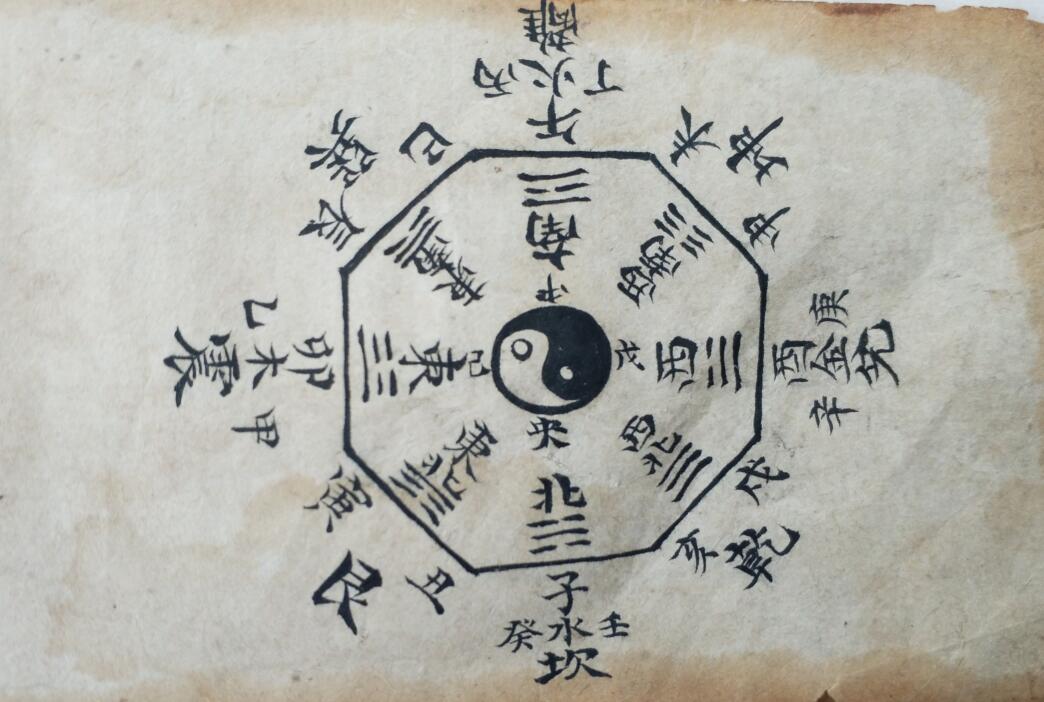 離
丙火丁
午
未
坤
申
庚
酉金兌
辛
戌
乾
亥
子
癸水壬
坎
丑
艮
寅
甲
卯木震
乙
辰
巽
巳
南
西南
西
西北
北
東北
東
東南
中
戊
央
己